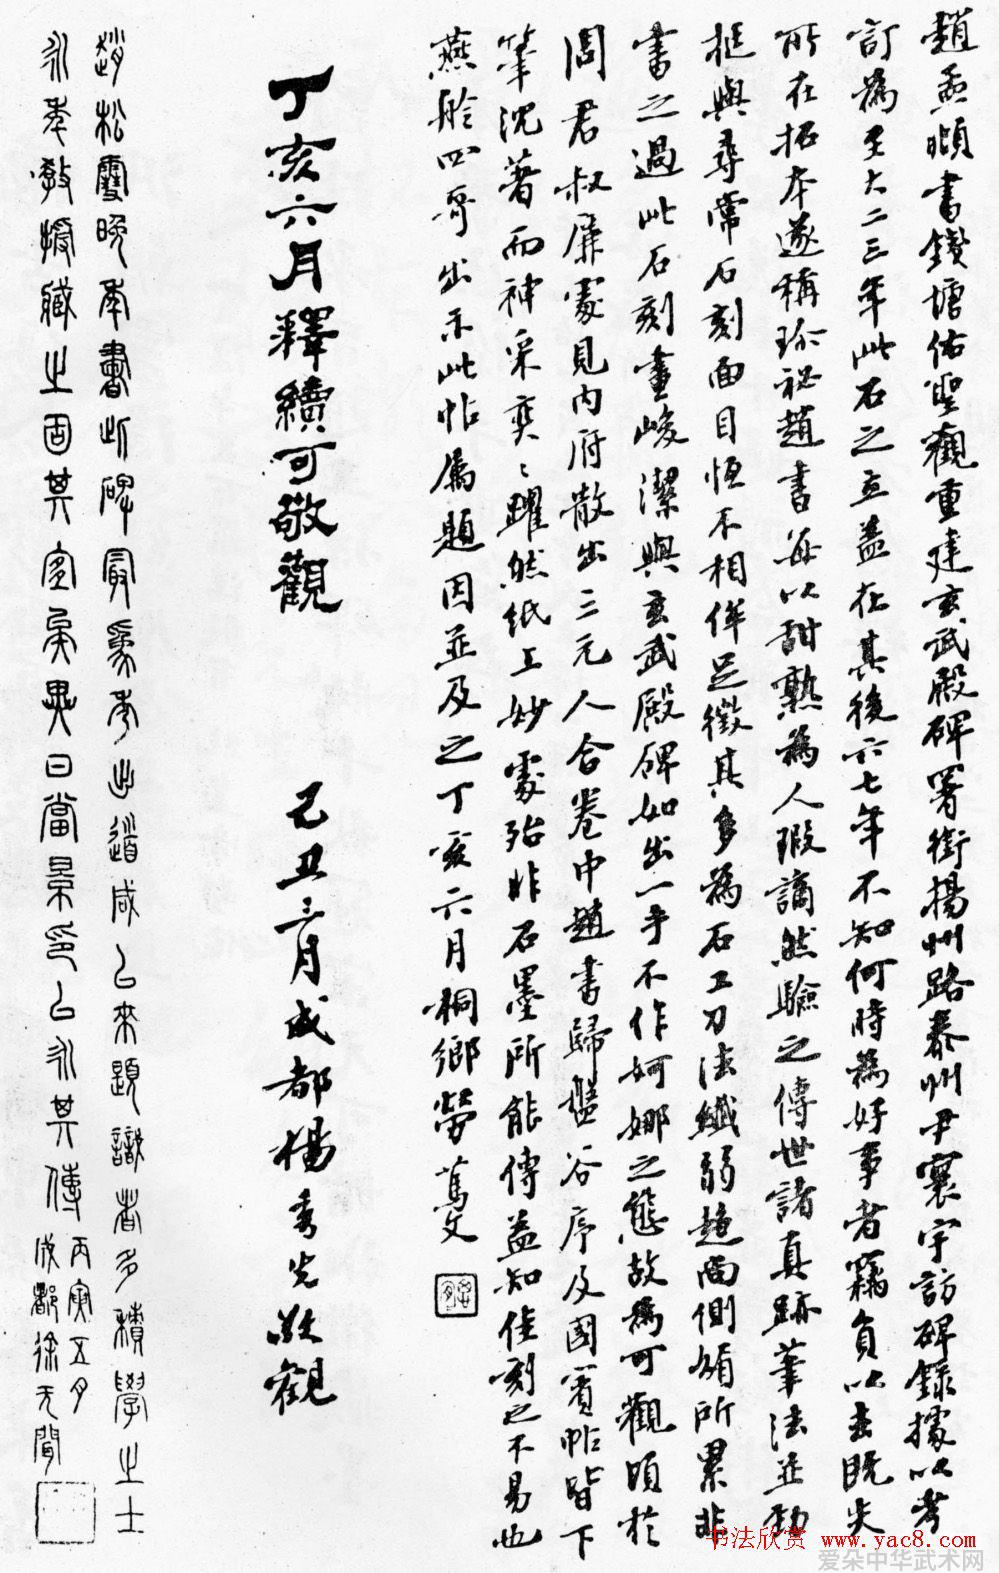 趙孟頫書錢塘佑聖觀重建玄武殿碑署銜揚州路泰州尹寰宇訪碑錄據以考
訂為至大二三年此石之立蓋在其後六七年不知何時為好事者竊負以去既失
所在拓本遂稱珍祕趙書每以甜熟為人瑕謫然驗之傳世諸真跡筆法並勁
挺與尋常石刻面目恒不相侔足徵其多為石工刀法纖弱趙面側媚所累非
書之過此石刻畫峻潔與玄武殿碑如出一手不作婀娜之態故為可觀頃於
周君叔廉處見內府散出三元人合卷中趙書歸盤谷序及國賓帖皆下
筆沈著而神采奕〻躍然紙上妙處殆非石墨所能傳益知佳刻之不易也
燕舲四哥出示此帖屬題因並及之丁亥六月桐鄉勞篤文
丁亥六月釋續可敬觀
己丑三月成都楊秀先敬觀
趙松雪晚年書此碑最為秀出道咸以來題識者多積學之士
永年教授藏之固其宜矣異日當景印以永其傳
丙寅五月
成都徐无聞
书法欣赏 www.yac8.com
爱朵中华武术网